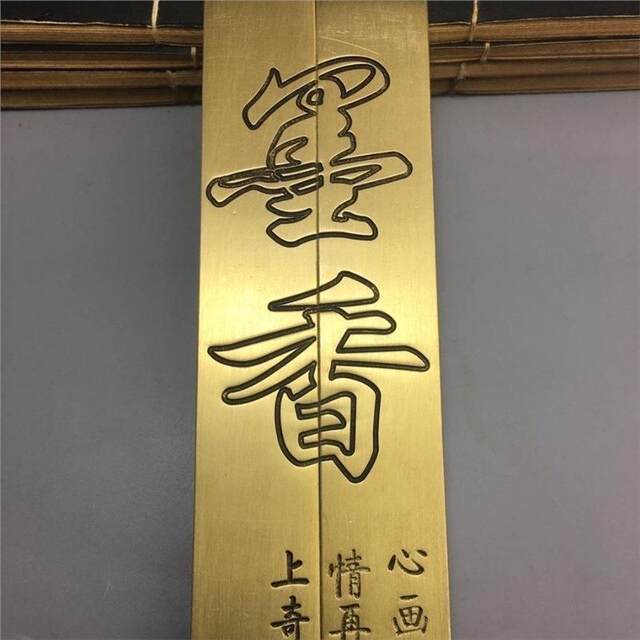 墨香
心画
情再
上奇